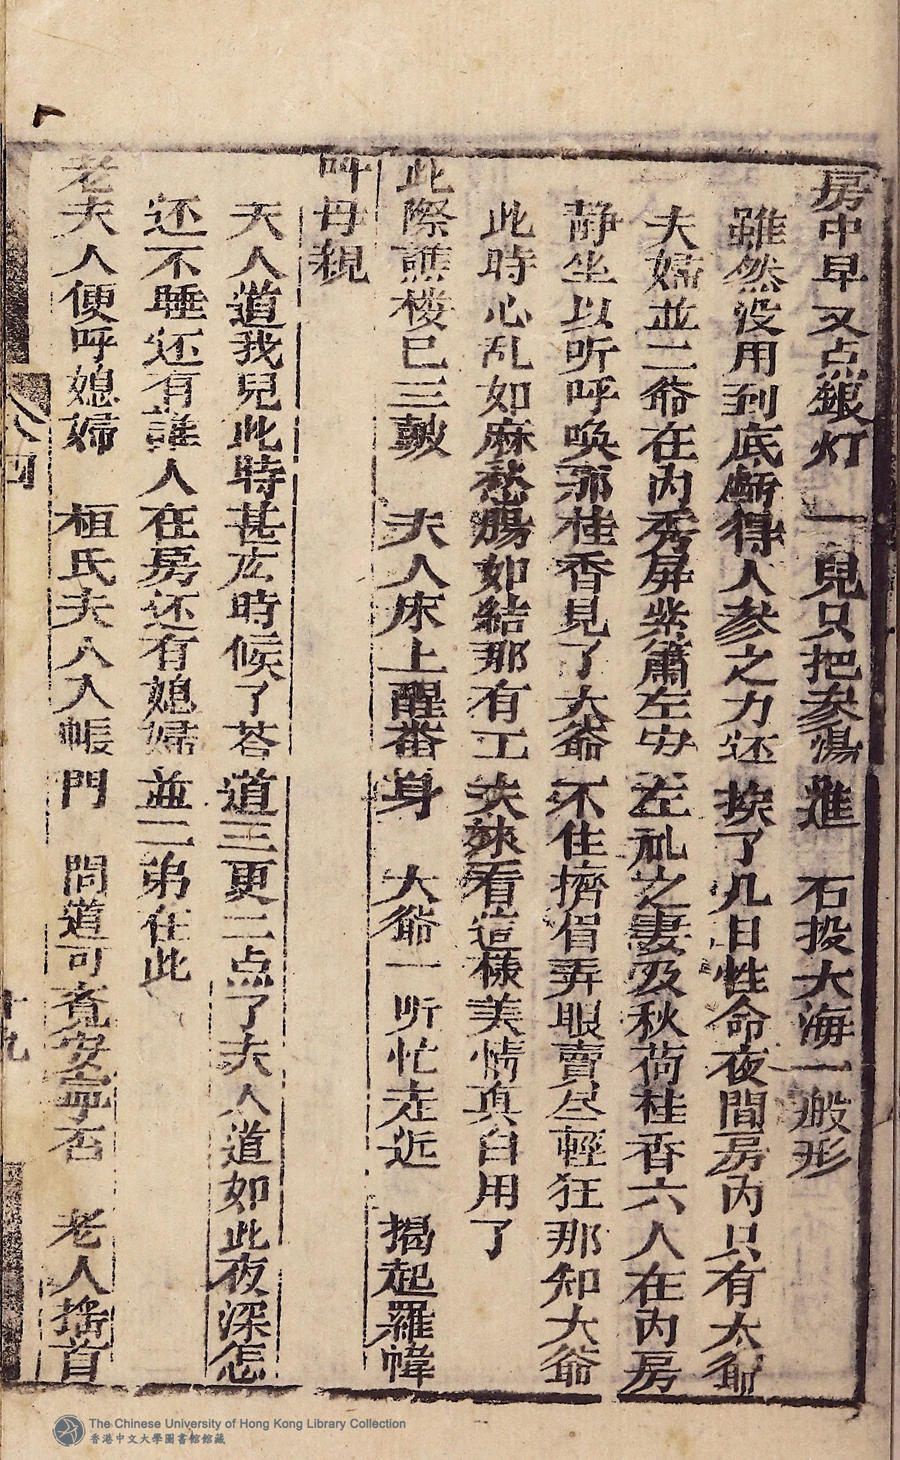 房中早又点銀灯　一兒只把参湯進　石投大海一般形
雖然没用到底虧得人参之力还挨了几日性命夜間房内只有大爺
夫婦並二爺在内秀屏紫簫左安左礼之妻及秋荷桂香六人在内房
静坐以听呼唤那桂香見了大爺不住擠眉弄眼賣尽輕狂那知大爺
此時心乱如麻愁腸如結那有工夫睬看這樣美情真白用了
此際譙楼已三鼓　夫人床上醒番身　大爺一听忙走近　揭起羅幃
呌母親
夫人道我兒此時甚庅時候了荅道三更二点了夫人道如此夜深怎
还不睡还有誰人在房还有媳婦並二弟在此
老夫人便呼媳婦　桓氏夫人入帳門　問道可覔安寧否　老人搖首
八四
十九
The Chinese University of Hong Kong Library Collection
香港中文大學圖書館館藏